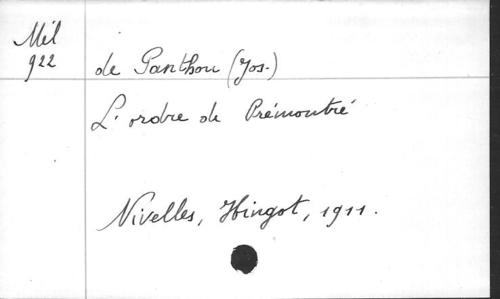 Mil
922
de Panthou (Jos.)
L'ordre de Prémontré
Nivelles, Hingot, 1911.